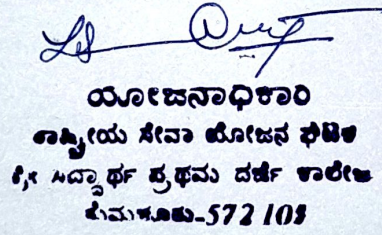 ಯೋಜನಾಧಿಕಾರಿ
ರಾಷ್ಟ್ರೀಯ ಸೇವಾ ಯೋಜನ ಘಟಕ
ಶ್ರೀ ಸಿದ್ಧಾರ್ಥ ಪ್ರಥಮ ದರ್ಜೆ ಕಾಲೇಜು
ತುಮಕೂರು-572 105